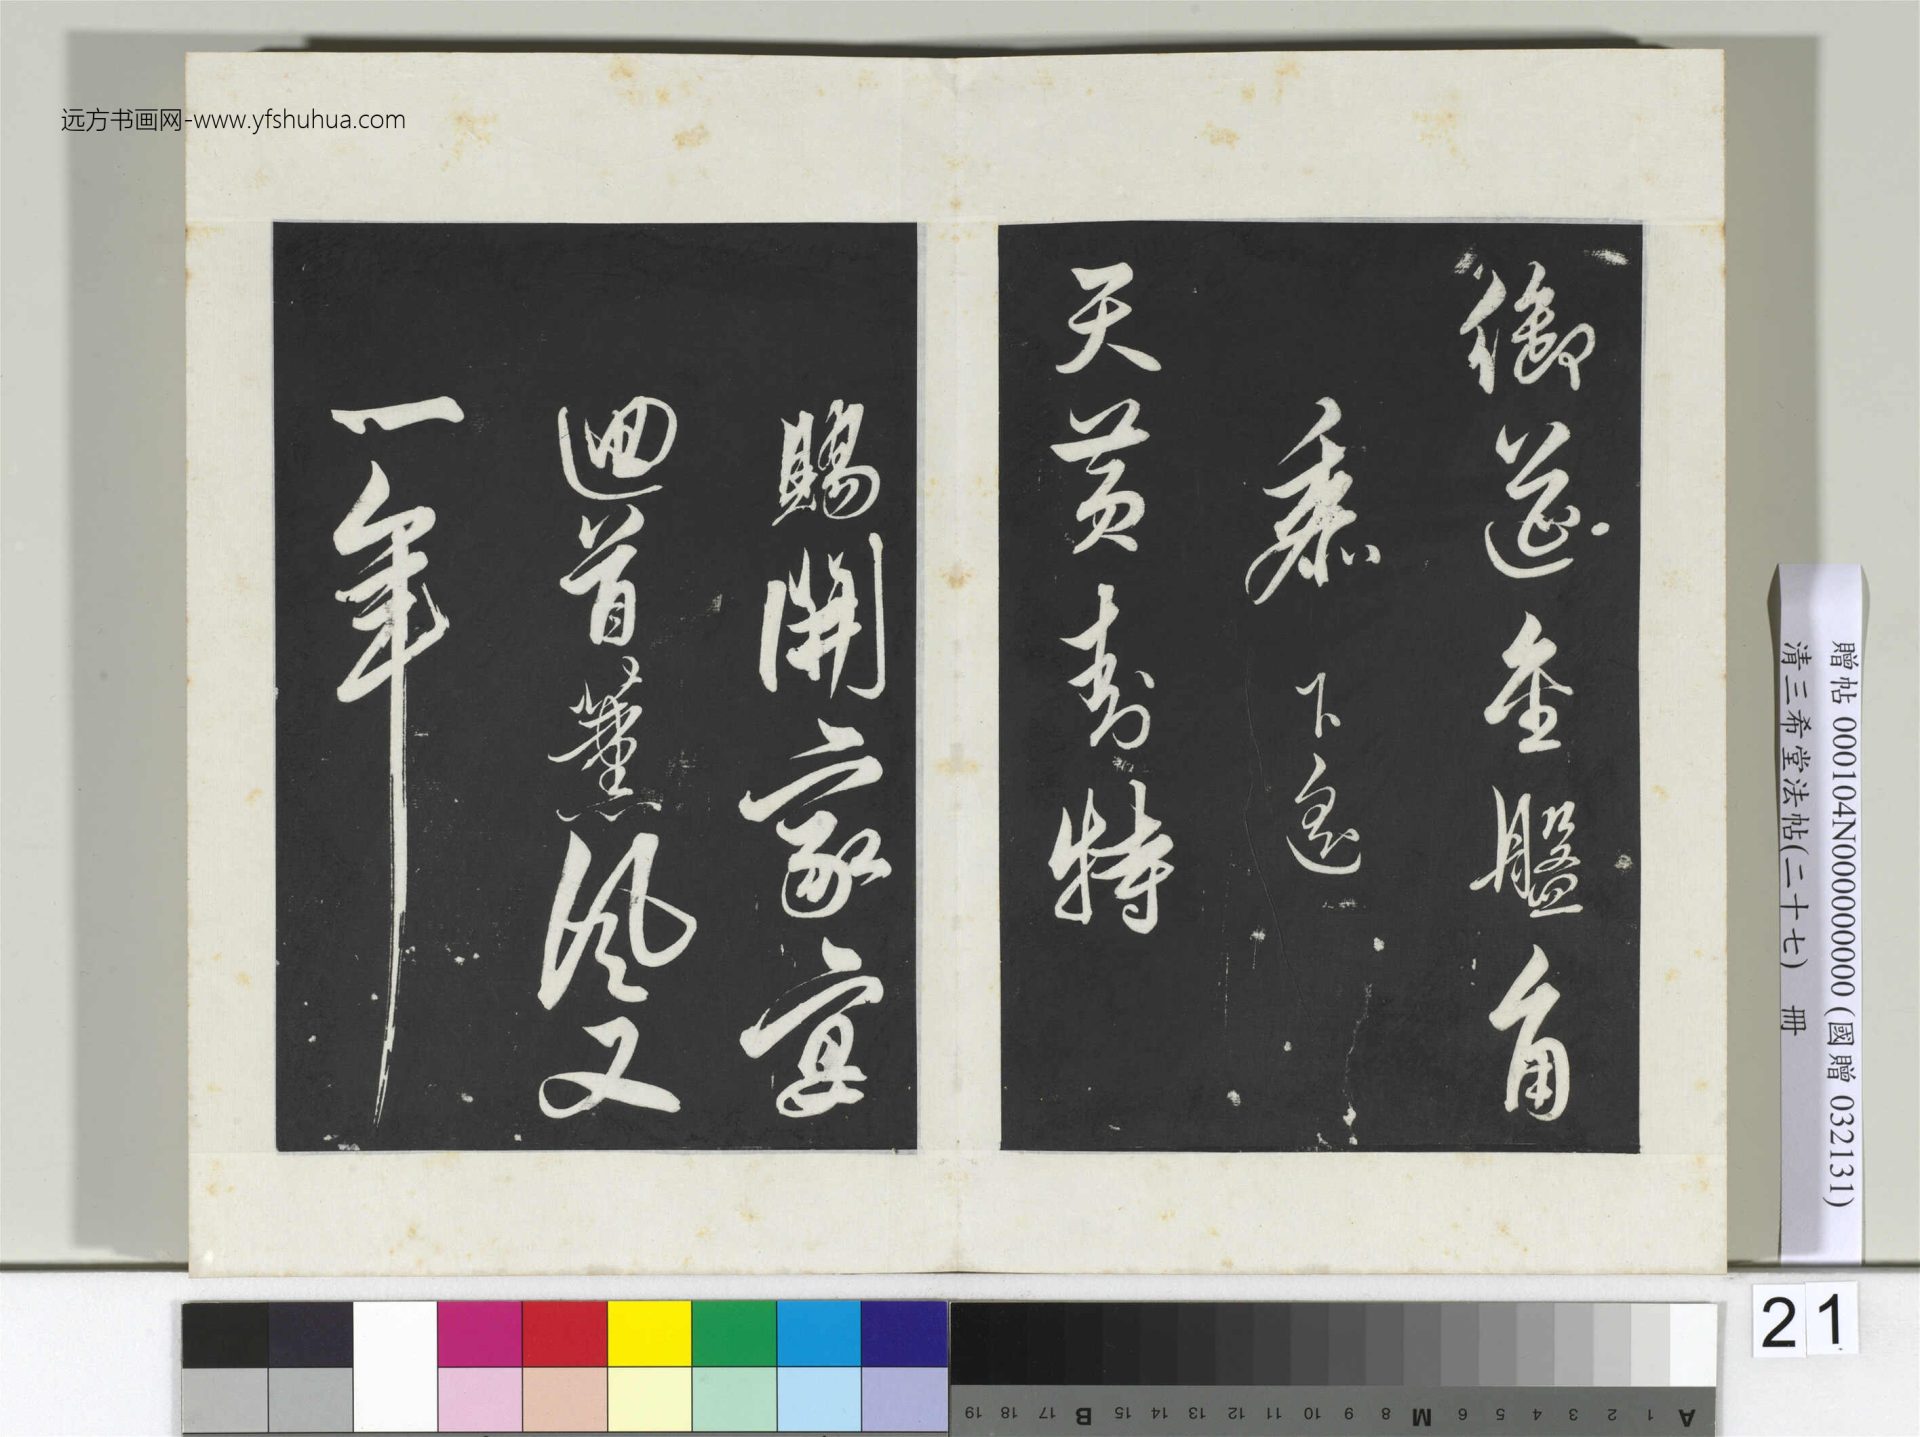 远方书画网-www.yfshuhua.com
御筵金盤角
黍下遙
天黃封特
賜開家宴
迴首薰風又
一年
贈帖 000104N000000000 (國贈 032131)
清三希堂法帖(二十七) 冊
21
A 1 2 3 4 5 6 M 8 9 10 11 12 13 14 15 B 17 18 19